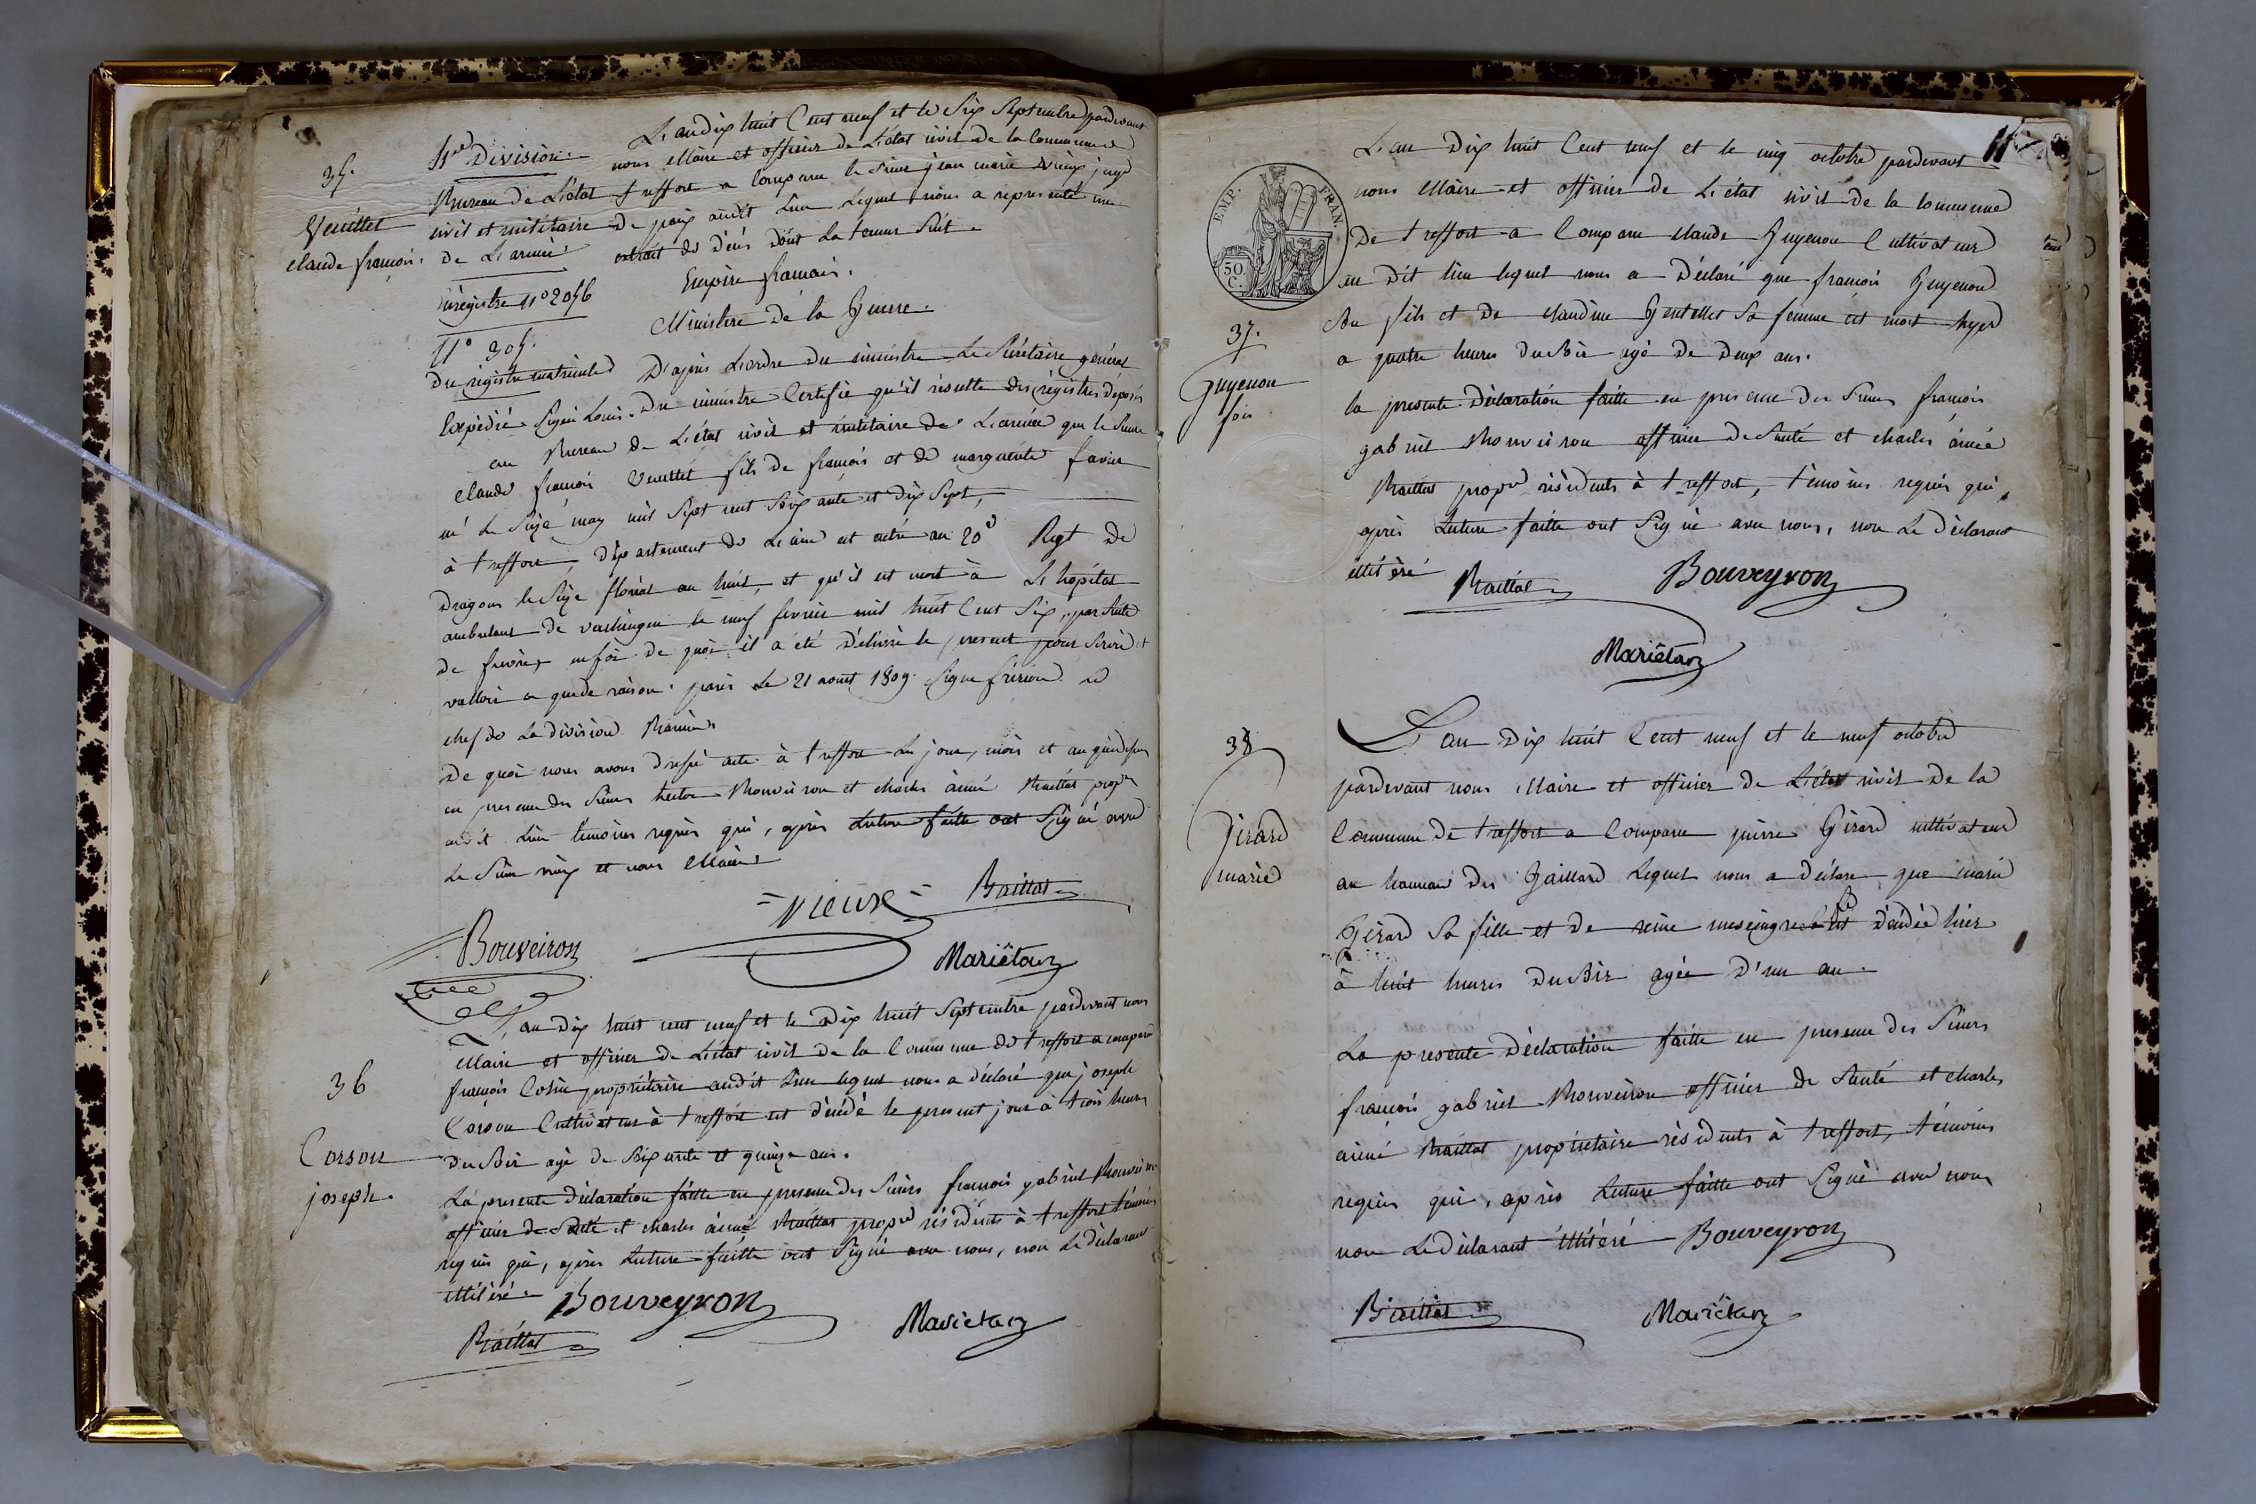 35.
Veuillet
claude françois.
4.e Division
Bureau de L'état
civil et militaire
de L'armée
enregistre N° 2056
N° 305.
du registre matricule
Expédié Signé Louis.
L'an dix huit Cent neuf et le Six Septembre pardevant
nous Maire et officier de L'état civil de la Commune de
treffort a comparu le Sieur jean marie Vieux juge
de paix audit Lieu Lequel nous a representé un
extrait de décés dont La teneur Suit.
Empire francais.
Ministere de la Guerre.
D'après L'ordre du ministre Le Sécrétaire général
du ministre Certifie qu'il résulte des régistres déposés
au Bureau de L'état civil et militaire de L'armée que le Sieur
claude francois Veuillet fils de francois et de marguerite favier
né Le Seize may mil Sept cent Soixante et dix Sept,
à treffort, département de L'ain est entré au 20e Regt de
Dragons le Seize floréal an huit, et qu'il est mort à L'hopital
ambulant de vaihingen le neuf fevrier mil huit Cent Six, par Suite
de fievre, en foi de quoi il a été délivré le present pour Servir et
valloir ce que de raison. paris Le 21 aout 1809. Signé fririon Le
chef de La division Barnier
De quoi nous avons dressé acte à treffort Les jour, mois et an que dessus
en presence des Sieurs hector Bouveiron et charles aimé Braillat propre
audit Lieu temoins requis qui, après Lecture faitte ont Signé avec
Le Sieur vieux et nous Maire
= Vieux = Braillat
Bouveiron Mariétan
36
Corson
joseph.
L'an dix huit cent neuf et le Dix huit Septembre pardevant nous
Maire et officier de L'état civil de la Commune de treffort a comparu
françois Cotin propriétaire audit Lieu lequel nous a déclaré que joseph
Corson Cultivateur à treffort est décédé le present jour à trois heures
du Soir agé de Soixante et quinze ans.
La presente déclaration faitte en presence des Sieurs francois gabriel Bouveiron
officier de Santé et charles aimé Braillat propre résidents à treffort témoins
requis qui, après Lecture faitte ont Signé avec nous, non Le déclarant
illitéré. Bouveyron
Braillat Mariétan
11
EMP. FRAN.
50 C.
37.
Guyenon
fois
L'an Dix huit Cent neuf et le cinq octobre pardevant
nous Maire et officier de L'état civil de la commune
De treffort a Comparu claude Guyenon Cultivateur
au dit lieu lequel nous a Déclaré que francois Guyenon
Son fils et de claudine Gentillet Sa femme est mort hyer
a quatre heures du Soir agé de deux ans.
la presente déclaration faitte en presence des Sieurs francois
gabriel Bouveiron officier de Santé et charles aimé
Braillat propre résidents à treffort, témoins requis qui,
après Lecture faitte ont Signé avec nous, non Le déclarant
illitéré Braillat Bouveyron
Mariétan
38
Girard
marie
L'an dix huit Cent neuf et le neuf octobre
pardevant nous Maire et officier de L'état civil de la
Commune de treffort a Comparu pierre Girard cultivateur
au hameau des Gaillard Lequel nous a déclaré que marie
Girard Sa fille et de reine est décédée hier
à huit heures du Soir agée d'un an.
La presente déclaration faitte en presence des Sieurs
francois gabriel Bouveiron officier de Santé et charles
aimé Braillat propriétaire résidents à treffort, témoins
requis qui, après Lecture faitte ont Signé avec nous
non Le déclarant illitéré Bouveyron
Braillat Mariétan